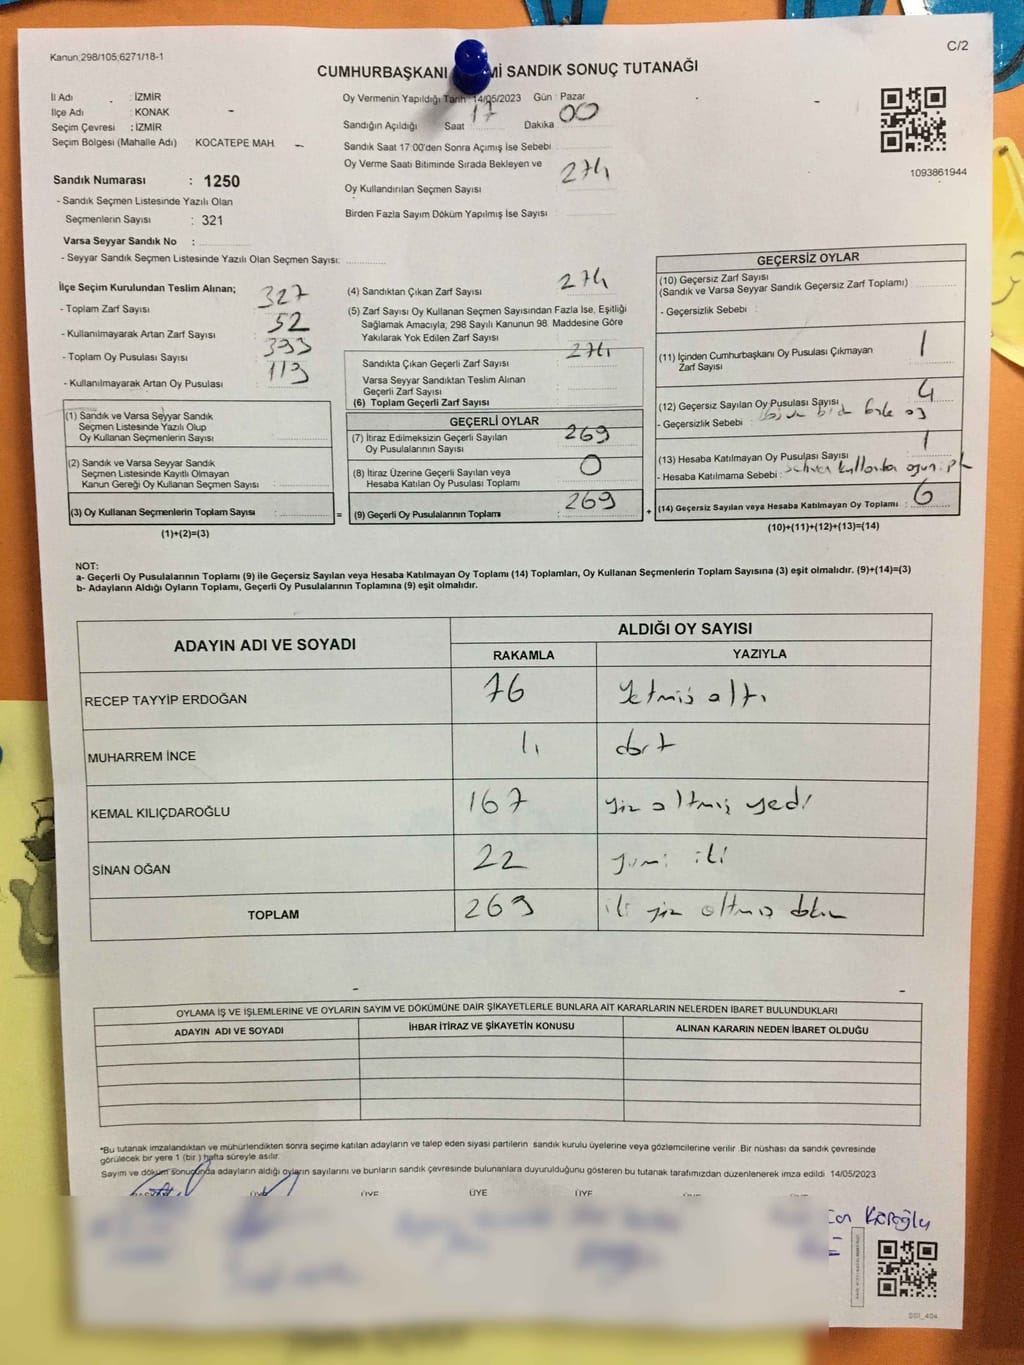 Kanun;298/105;6271/18-1
C/2
CUMHURBAŞKANI Mİ SANDIK SONUÇ TUTANAĞI
İl Adı : İZMİR
İlçe Adı : KONAK
Seçim Çevresi : İZMİR
Seçim Bölgesi (Mahalle Adı) KOCATEPE MAH.
Sandık Numarası : 1250
- Sandık Seçmen Listesinde Yazılı Olan
Seçmenlerin Sayısı : 321
Varsa Seyyar Sandık No :
- Seyyar Sandık Seçmen Listesinde Yazılı Olan Seçmen Sayısı:
Oy Vermenin Yapıldığı Tarih : 14/05/2023 Gün : Pazar
Sandığın Açıldığı Saat 17 Dakika 00
Sandık Saat 17:00'den Sonra Açımış İse Sebebi
Oy Verme Saati Bitiminde Sırada Bekleyen ve
Oy Kullandırılan Seçmen Sayısı 274
Birden Fazla Sayım Döküm Yapılmış İse Sayısı
1093861944
İlçe Seçim Kurulundan Teslim Alınan;
- Toplam Zarf Sayısı : 327
- Kullanılmayarak Artan Zarf Sayısı : 52
- Toplam Oy Pusulası Sayısı : 393
- Kullanılmayarak Artan Oy Pusulası : 113
(1) Sandık ve Varsa Seyyar Sandık
Seçmen Listesinde Yazılı Olup
Oy Kullanan Seçmenlerin Sayısı :
(2) Sandık ve Varsa Seyyar Sandık
Seçmen Listesinde Kayıtlı Olmayan
Kanun Gereği Oy Kullanan Seçmen Sayısı :
(3) Oy Kullanan Seçmenlerin Toplam Sayısı : =
(1)+(2)=(3)
(4) Sandıktan Çıkan Zarf Sayısı : 274
(5) Zarf Sayısı Oy Kullanan Seçmen Sayısından Fazla İse, Eşitliği
Sağlamak Amacıyla; 298 Sayılı Kanunun 98. Maddesine Göre
Yakılarak Yok Edilen Zarf Sayısı :
Sandıkta Çıkan Geçerli Zarf Sayısı : 274
Varsa Seyyar Sandıktan Teslim Alınan
Geçerli Zarf Sayısı
(6) Toplam Geçerli Zarf Sayısı :
GEÇERLİ OYLAR
(7) İtiraz Edilmeksizin Geçerli Sayılan
Oy Pusulalarının Sayısı : 269
(8) İtiraz Üzerine Geçerli Sayılan veya
Hesaba Katılan Oy Pusulası Toplamı : 0
(9) Geçerli Oy Pusulalarının Toplamı : 269 +
GEÇERSİZ OYLAR
(10) Geçersiz Zarf Sayısı
(Sandık ve Varsa Seyyar Sandık Geçersiz Zarf Toplamı) :
- Geçersizlik Sebebi :
(11) İçinden Cumhurbaşkanı Oy Pusulası Çıkmayan
Zarf Sayısı : 1
(12) Geçersiz Sayılan Oy Pusulası Sayısı : 4
- Geçersizlik Sebebi :
(13) Hesaba Katılmayan Oy Pusulası Sayısı : 1
- Hesaba Katılmama Sebebi :
(14) Geçersiz Sayılan veya Hesaba Katılmayan Oy Toplamı : 6
(10)+(11)+(12)+(13)=(14)
NOT:
a- Geçerli Oy Pusulalarının Toplamı (9) ile Geçersiz Sayılan veya Hesaba Katılmayan Oy Toplamı (14) Toplamları, Oy Kullanan Seçmenlerin Toplam Sayısına (3) eşit olmalıdır. (9)+(14)=(3)
b- Adayların Aldığı Oyların Toplamı, Geçerli Oy Pusulalarının Toplamına (9) eşit olmalıdır.
ADAYIN ADI VE SOYADI
ALDIĞI OY SAYISI
RAKAMLA YAZIYLA
RECEP TAYYİP ERDOĞAN 76 Yetmiş altı
MUHARREM İNCE 4 dört
KEMAL KILIÇDAROĞLU 167 yüz altmış yedi
SİNAN OĞAN 22 yirmi iki
TOPLAM 269 iki yüz altmış dokuz
OYLAMA İŞ VE İŞLEMLERİNE VE OYLARIN SAYIM VE DÖKÜMÜNE DAİR ŞİKAYETLERLE BUNLARA AİT KARARLARIN NELERDEN İBARET BULUNDUKLARI
ADAYIN ADI VE SOYADI İHBAR İTİRAZ VE ŞİKAYETİN KONUSU ALINAN KARARIN NEDEN İBARET OLDUĞU
*Bu tutanak imzalandıktan ve mühürlendikten sonra seçime katılan adayların ve talep eden siyasi partilerin sandık kurulu üyelerine veya gözlemcilerine verilir. Bir nüshası da sandık çevresinde
görülecek bir yere 1 (bir) hafta süreyle asılır.
Sayım ve döküm sonucunda adayların aldığı oyların sayılarını ve bunların sandık çevresinde bulunanlara duyurulduğunu gösteren bu tutanak tarafımızdan düzenlenerek imza edildi. 14/05/2023
ÜYE ÜYE ÜYE
Köroğlu